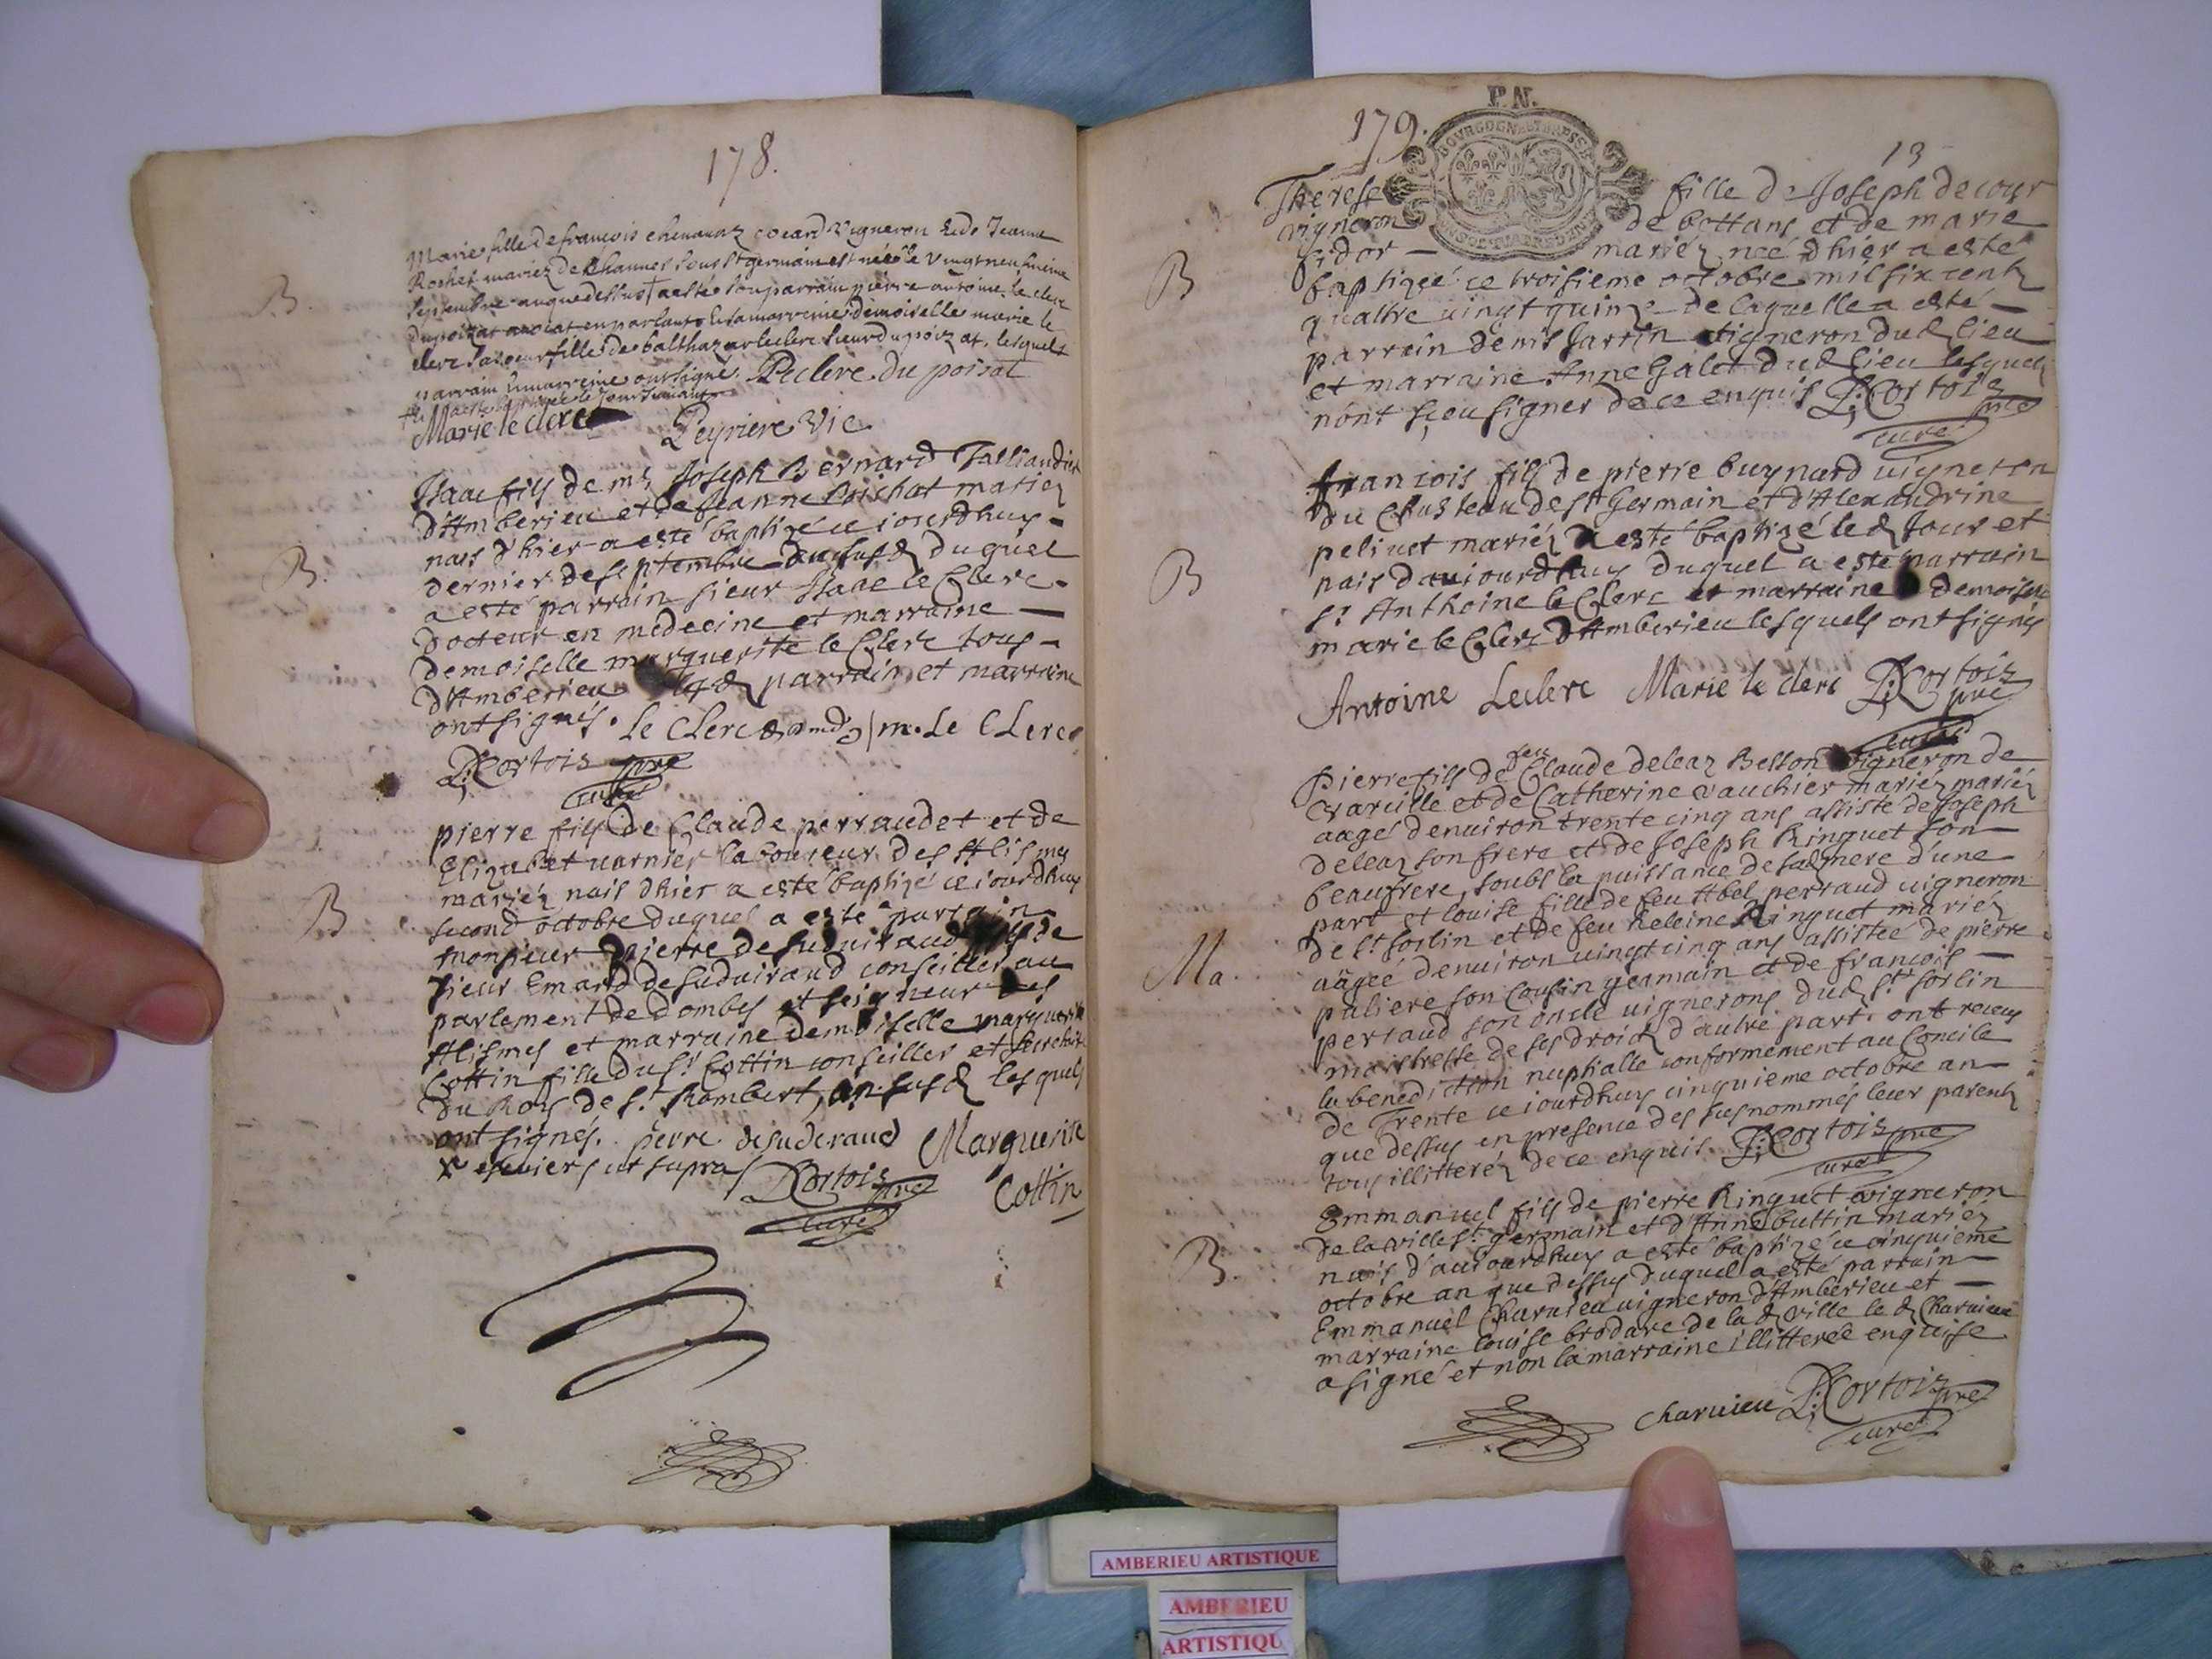 178.
Marie fille de francois chenauaz couard vigneron & de Jeanne
Rochet mariez de Chaunes sous st germain est née le vingt neufuieme
septembre an que dessus † a esté son parrain pierre antoine le clerc
du poizat auocat en parlant & sa marreine demoiselle marie le
clerc sa soeur fille de balthazar leclerc sieur du poizat, lesquels
parrain & marreine ont signé. Leclerc du poisat
† a esté baptizée le jour suiuant
Marie le clerc
Peyriere vic
B.
Isaac fils de mr Joseph Bernard Taillandier
d'Amberieu et de Jeanne boichat mariez
nais d'hier a esté baptizé ce iourdhuy -
dernier de septembre an susd duquel
a esté parrain sieur Isaac le Clerc -
docteur en medecine et marraine —
demoiselle marguerite le Clerc tous -
d'Amberieu lesd parrain et marraine
ont signés. Le Clerc dmd m. Le Clerc
P. Cortois pre
curé
B.
pierre fils de Claude perraudet et de
Elizabet varnier laboureur des Alismes
mariez nais dhier a esté baptizé ce iourdhuy
second octobre duquel a esté parrain
monsieur pierre de suduiraud fils de
sieur Emard de suduiraud conseiller au
parlement de dombes et seigneur des
Alismes et marraine demoiselle marguerite
Cottin fille du sr Cottin conseiller et secretaire
du Roy de st Rambert, an susd lesquels
ont signés. pierre desuderaud Marguerite
Cottin
ut supra P. Cortois pre
curé
B
179.
P. N.
13
Therese fille de Joseph decour
vigneron de bettans et de marie
sidor — mariez neé dhier a esté
baptizeé ce troisieme octobre mil six cents
quattre vingt quinze de laquelle a esté —
parrain denis Jartin vigneron dud lieu
et marraine Anne Galet dud lieu lesquels
n'ont sçeu signer de ce enquis P. Cortois pre
curé
B
francois fils de pierre buynard vigneron
du Chasteau de st Germain et d'Alexandrine
peliuet mariez a esté baptizé led Jour et
nais daujourdhuy duquel a esté parrain
sr Anthoine le Clerc et marraine demoiselle
marie le Clerc d'Amberieu lesquels ont signés
Antoine Leclerc Marie le clerc P. Cortois pre
curé
B
Pierre fils de feu Claude deleaz Besson vigneron de
Vareille et de Catherine vauchier mariez mariez
aagé denuiron trente cinq ans assisté de Joseph
deleaz son frere et de Joseph Ringuet son
beaufrere, soubs la puissance de sad mere d'une
part et louise fille de feu Abel perraud vigneron
de st sorlin et de feu heleine Ringuet mariez
aägeé denuiron vingt cinq ans assisteé de pierre
paliere son Cousin germain et de francois —
perraud son oncle vignerons dud st sorlin
maistresse de ses droicts d'autre part. ont receus
la benediction nuptialle conformement au Concile
de Trente ce iourdhuy cinquieme octobre an —
que dessus en presence des susnommés leur parents
tous illitterez de ce enquis. P. Cortois pre
curé
Ma.
Emmanuel fils de pierre Ringuet vigneron
de la ville st germain et d'Anne buttin mariez
nais d'aujourdhuy a esté baptizé ce cinquieme
octobre an que dessus duquel a esté parrain —
Emmanuel Charuieu vigneron d'Amberieu et —
marraine louise brodare de lad ville led Charuieu
a signé et non la marraine illittereé enquise
charuieu P. Cortois pre
curé
B.
AMBERIEU ARTISTIQUE
AMBERIEU
ARTISTIQU